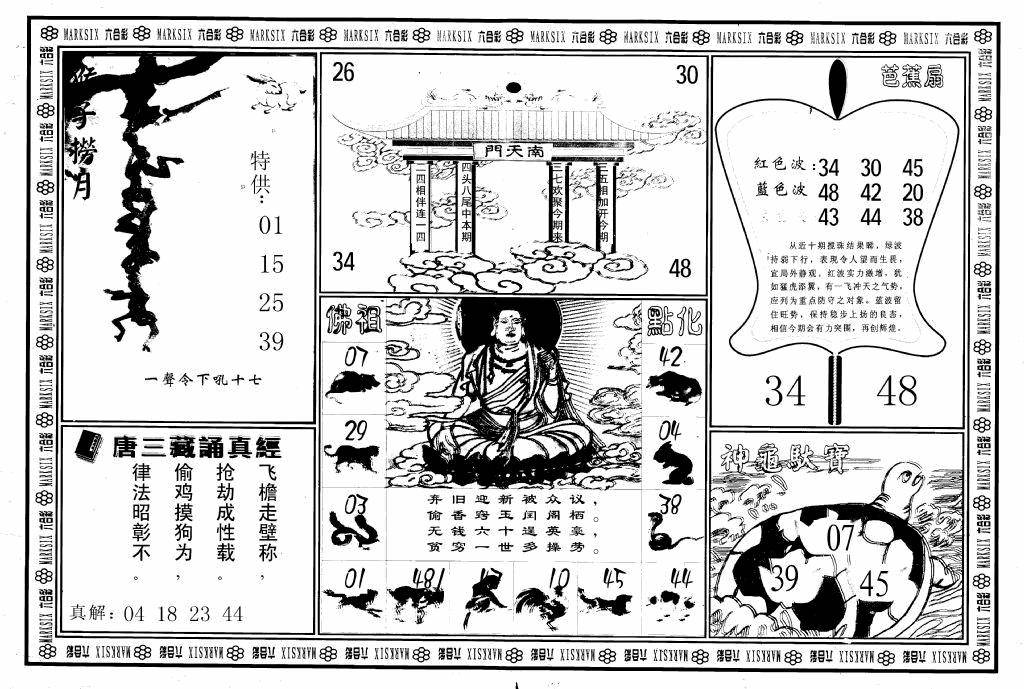 MARKSIX 六合彩 MARKSIX 六合彩 MARKSIX 六合彩 MARKSIX 六合彩 MARKSIX 六合彩 MARKSIX 六合彩 MARKSIX 六合彩 MARKSIX 六合彩 MARKSIX 六合彩 MARKSIX 六合彩
猴子撈月
特供:
01
15
25
39
一聲令下吼十七
26
30
南天門
一四相伴连一四
四头八尾中本期
三七欢聚今期来
五相加开今期
34
48
芭蕉扇
紅色波: 34 30 45
藍色波 48 42 20
43 44 38
从近十期搅珠结果睇,绿波
持弱下行,表现令人望而生畏,
宜局外静观。红波实力激增,犹
如猛虎添翼,有一飞冲天之气势,
应列为重点防守之对象。蓝波留
住旺势,保持稳步上扬的良态,
相信今期会有力突围,再创辉煌。
34 48
佛祖
點化
07
29
03
42
04
38
弃旧迎新被众议,
偷香窃玉闰阁栖。
无钱六十逞英豪,
贫穷一世多操劳。
01 481 10 45 44
唐三藏誦真經
飞檐走壁称,
抢劫成性载。
偷鸡摸狗为,
律法昭彰不。
真解: 04 18 23 44
神龜馱寶
07
39
45